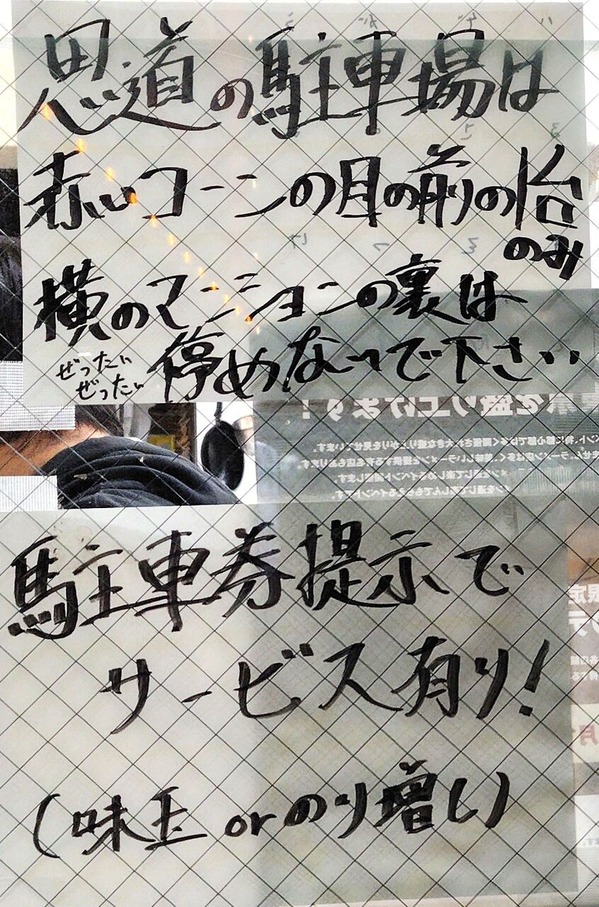 思道の駐車場は
赤いコーンの目の前の1台
のみ
横のマンションの裏は
ぜったい
ぜったい
停めないで下さい
駐車券提示で
サービス有り!
(味玉 or のり増し)